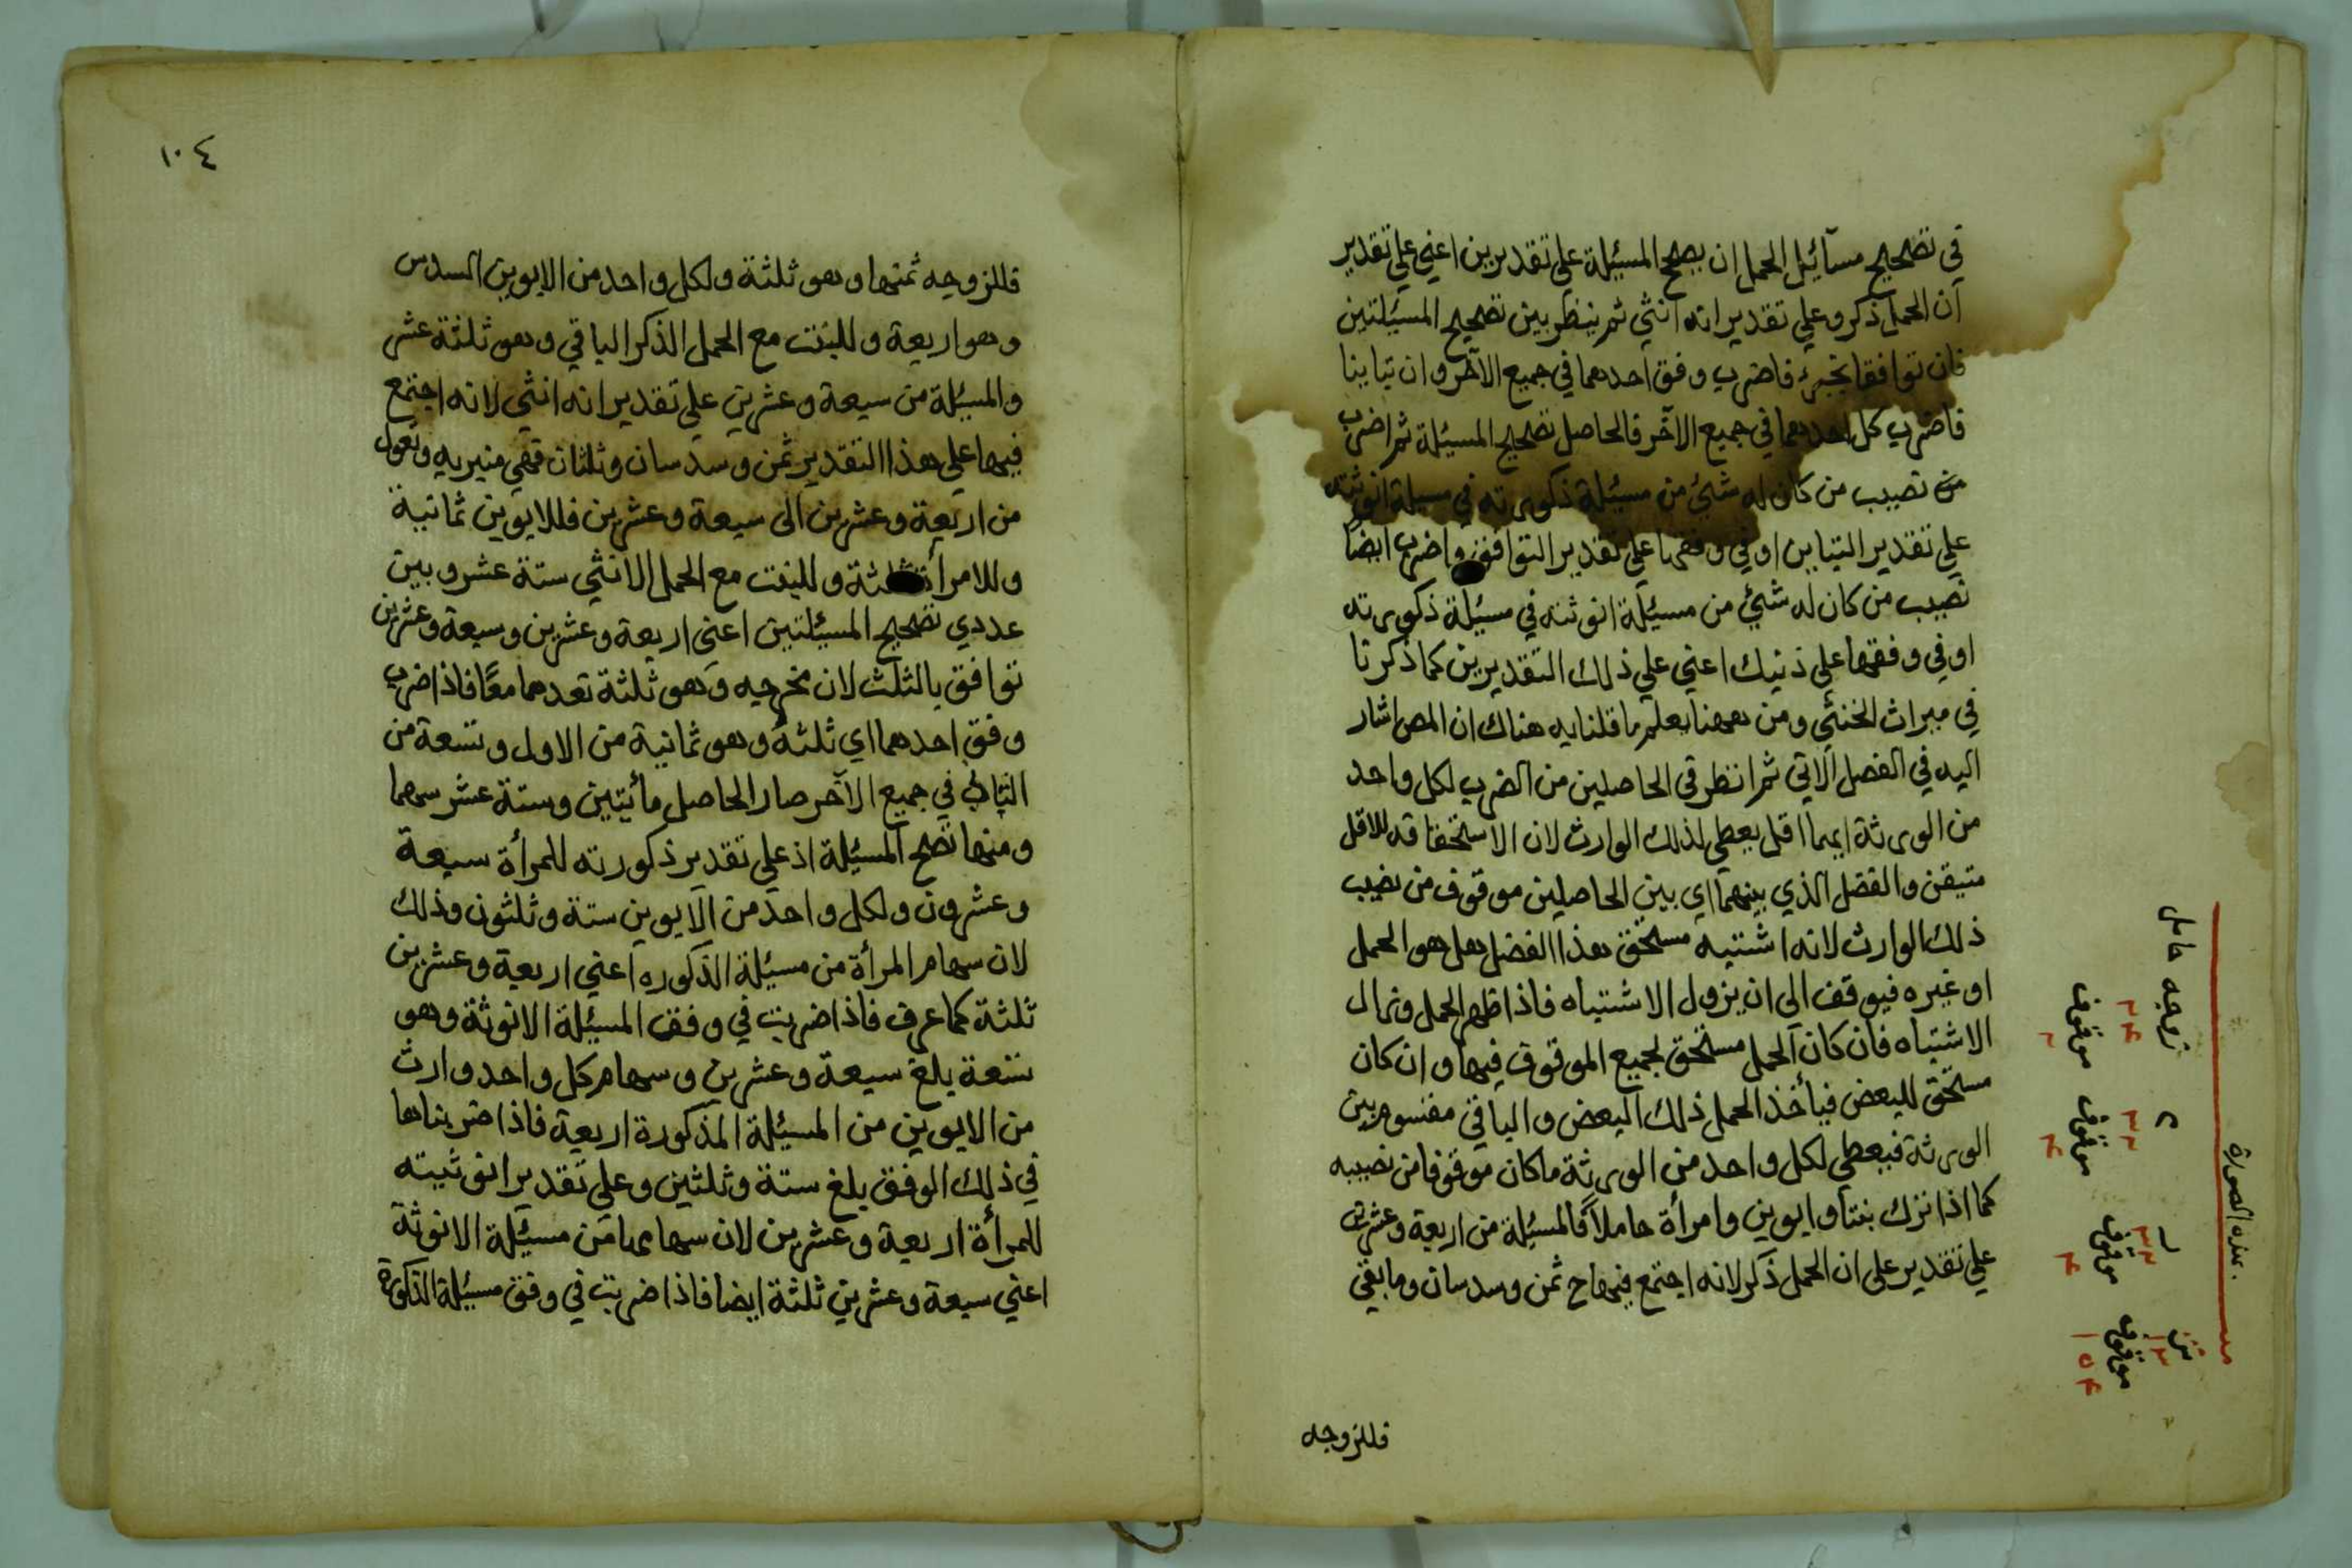 في تصحيح مسآئيل الحمل ان يصحح المسيئلة علي تقديرين اعني علي تقدير
ان الحمل ذكر وعلي تقدير انه انثي ثم ينظر بين تصحيح المسيئلتين
فان توافقا بجزء فاضرب وفق احدهما في جميع الآخر وان تباينا
فاضرب كل احدهما في جميع الآخر فالحاصل تصحيح المسيئلة ثم اضرب
من نصيب من كان له شئ من مسيئلة ذكورته في مسيلة انوثته
علي تقدير التباين او في وفقها علي تقدير التوافق واضرب ايضًا
نصيب من كان له شئ من مسيئلة انوثته في مسيئلة ذكورته
او في وفقها علي ذنيك اعني علي ذلك التقديرين كما ذكرنا
في ميراث الخنثي ومن ههنا يعلم ما قلنا به هناك ان المص اشار
اليه في الفصل الآتي ثم انظر في الحاصلين من الضرب لكل واحد
من الورثة ايهما اقل يعطي لذلك الوارث لان الاستحقاقه للاقل
متيقن والفضل الذي بينهما اي بين الحاصلين موقوف من نصيب
ذلك الوارث لانه اشتبه مستحق هذا الفضل هل هو الحمل
او غيره فيوقف الى ان يزول الاشتباه فاذا ظهر الحمل وزال
الاشتباه فان كان الحمل مستحق لجميع الموقوف فيها وان كان
مستحق للبعض فيأخذ الحمل ذلك البعض والباقي مقسوم بين
الورثة فيعطي لكل واحد من الورثة ما كان موقوفا من نصيبه
كما اذا ترك بنتا وابوين وامرأة حاملاً فالمسيئلة من اربعة وعشرين
علي تقدير علي ان الحمل ذكر لانه اجتمع فيها ح ثمن وسدسان وما بقي
فللزوجه
هذه الصورة
زوجه حامل
موقوف
موقوف
موقوف
موقوف
١٠٤
فللزوجه ثمنها وهو ثلثة ولكل واحد من الابوين السدس
وهو اربعة وللبنت مع الحمل الذكر الباقي وهو ثلثة عشر
والمسيئلة من سبعة وعشرين علي تقدير انه انثي لانه اجتمع
فيها علي هذا التقدير ثمن وسدسان وثلثان فهي منبريه وتعول
من اربعة وعشرين الى سبعة وعشرين فللابوين ثمانية
وللامرأة ثلثة وللبنت مع الحمل الانثي ستة عشر وبين
عددي تصحيح المسيئلتين اعني اربعة وعشرين وسبعة وعشرين
توافق بالثلث لان مخرجه وهو ثلثة تعدهما معًا فاذا ضرب
وفق احدهما اي ثلثه وهو ثمانية من الاول وتسعة من
الثاني في جميع الآخر صار الحاصل مأتين وستة عشر سهما
ومنها تصح المسيئلة اذ علي تقدير ذكورته للمرأة سبعة
وعشرون ولكل واحد من الابوين ستة وثلثون وذلك
لان سهام المرأة من مسيئلة الذكوره اعني اربعة وعشرين
ثلثة كما عرف فاذا ضربت في وفق المسيئلة الانوثة وهو
تسعة بلغ سبعة وعشرين وسهام كل واحد وارث
من الابوين من المسيئلة المذكورة اربعة فاذا ضربناها
في ذلك الوفق بلغ ستة وثلثين وعلي تقدير انوثيته
للمرأة اربعة وعشرين لان سهامها من مسيئلة الانوثة
اعني سبعة وعشرين ثلثة ايضا فاذا ضربت في وفق مسيئلة الذكورة